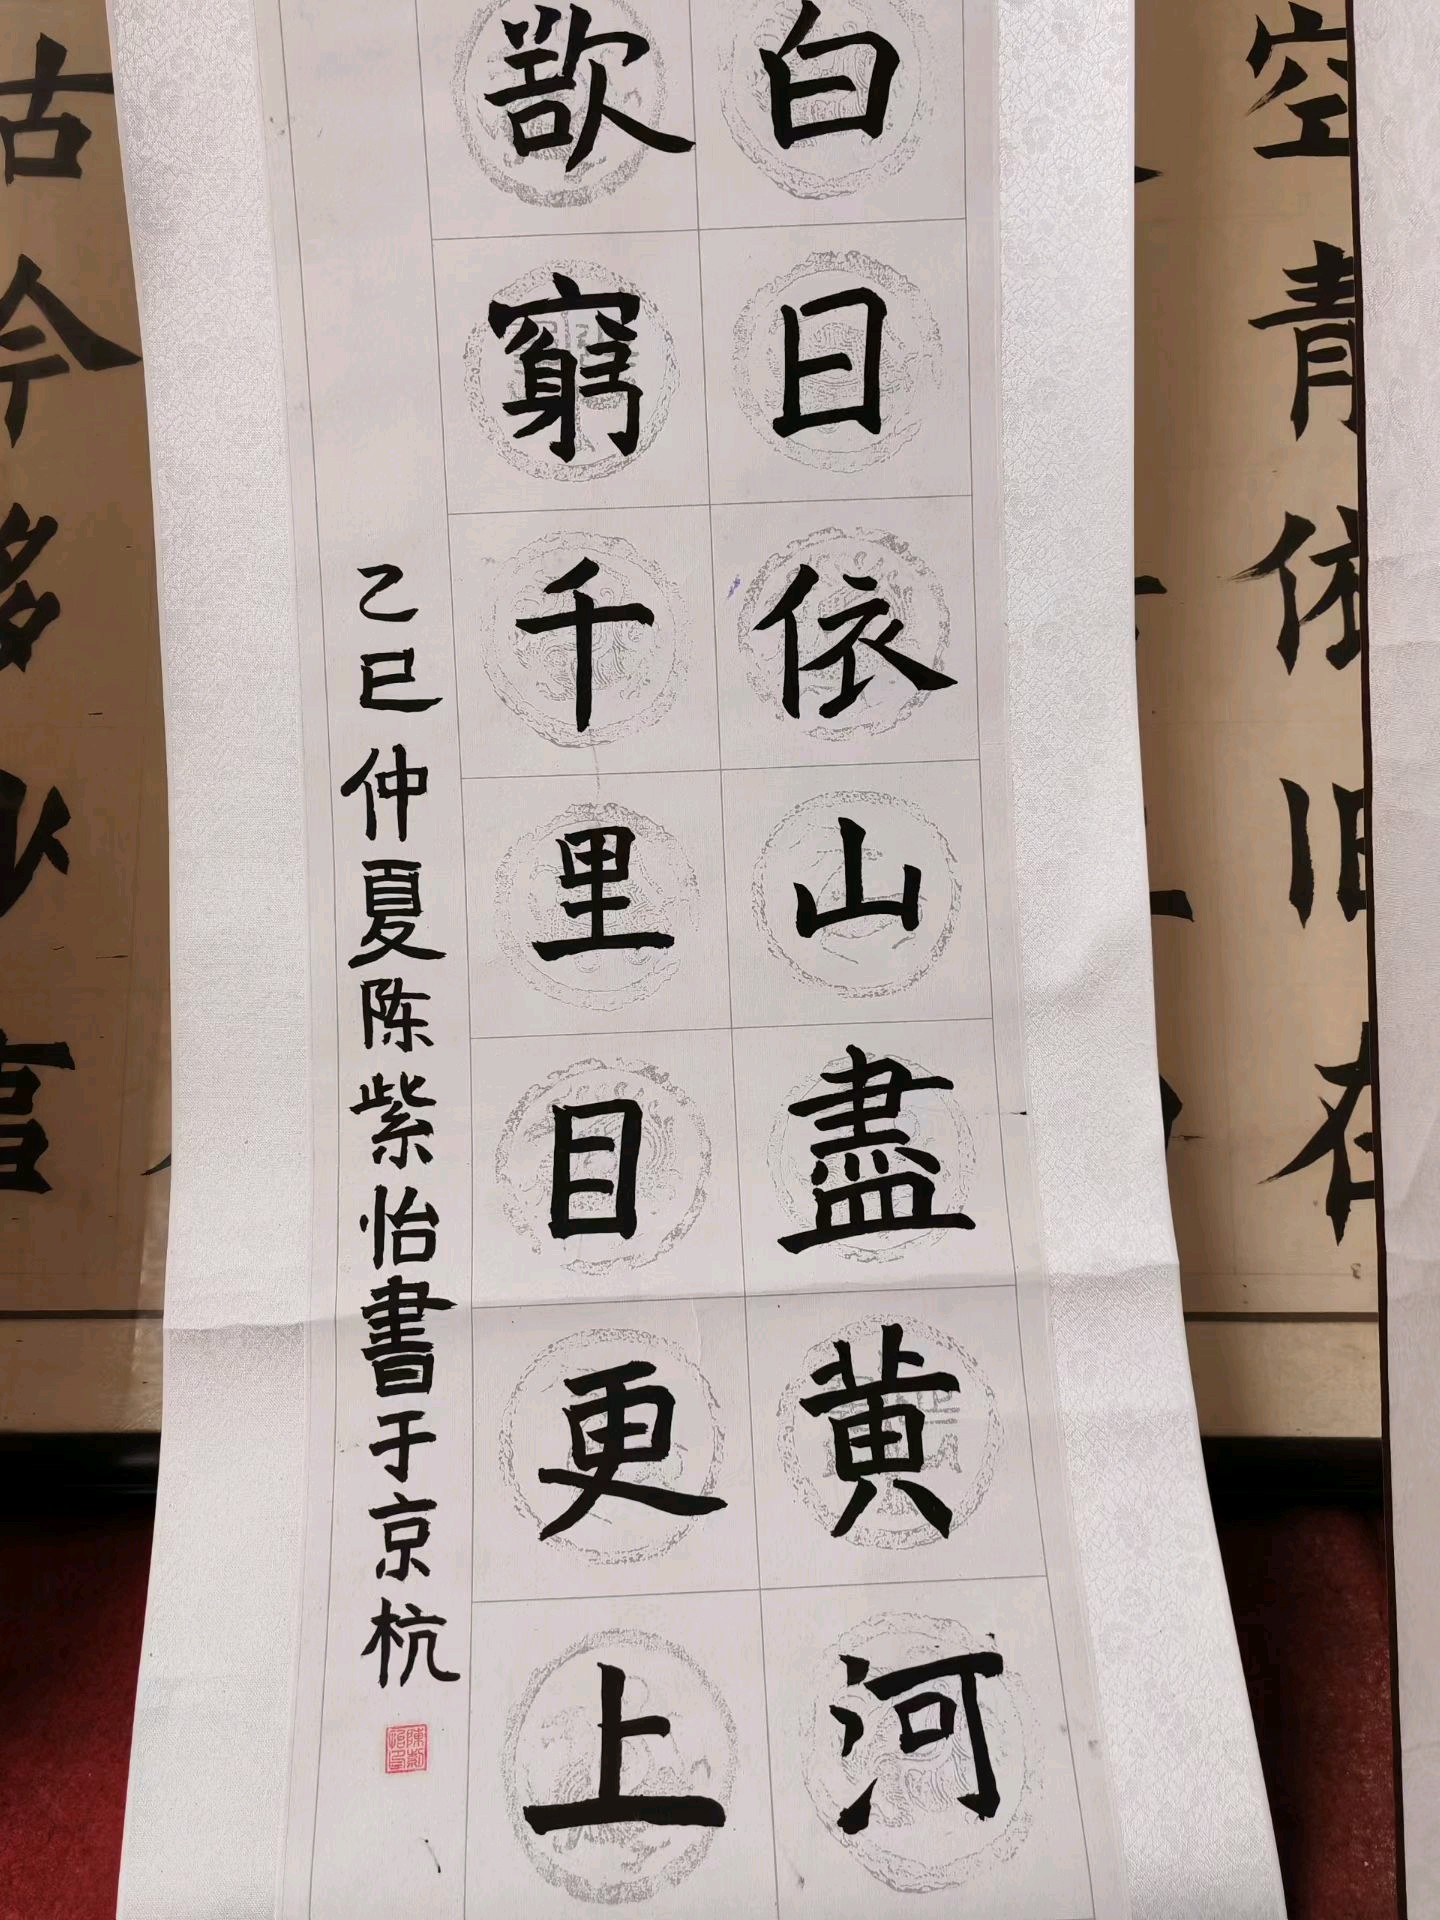 空青依旧在
白日依山盡黄河
欲窮千里目更上
乙巳仲夏陈紫怡書于京杭
陳紫怡印
古今多少事